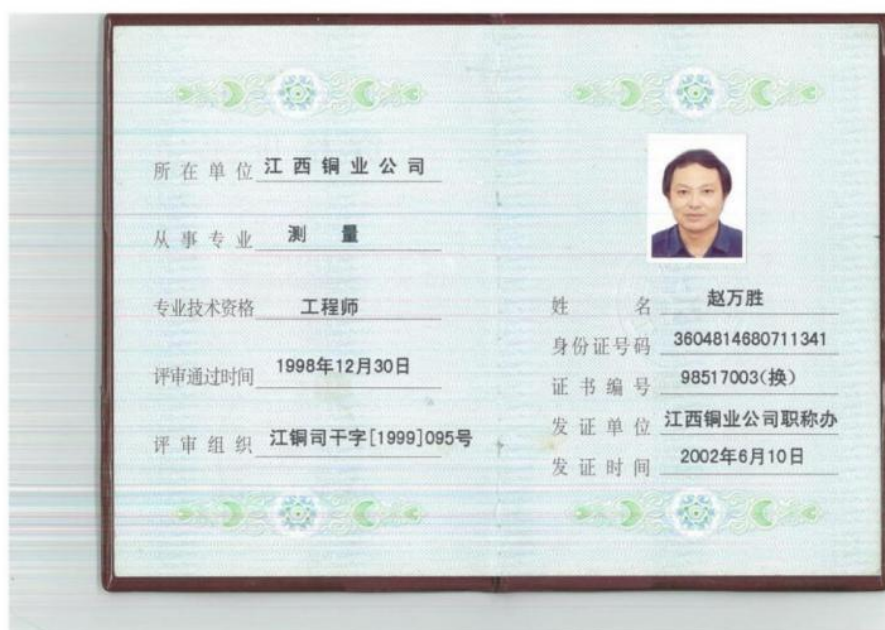 所在单位 江西铜业公司
从事专业 测量
专业技术资格 工程师
评审通过时间 1998年12月30日
评审组织 江铜司干字[1999]095号
姓名 赵万胜
身份证号码 3604814680711341
证书编号 98517003(换)
发证单位 江西铜业公司职称办
发证时间 2002年6月10日